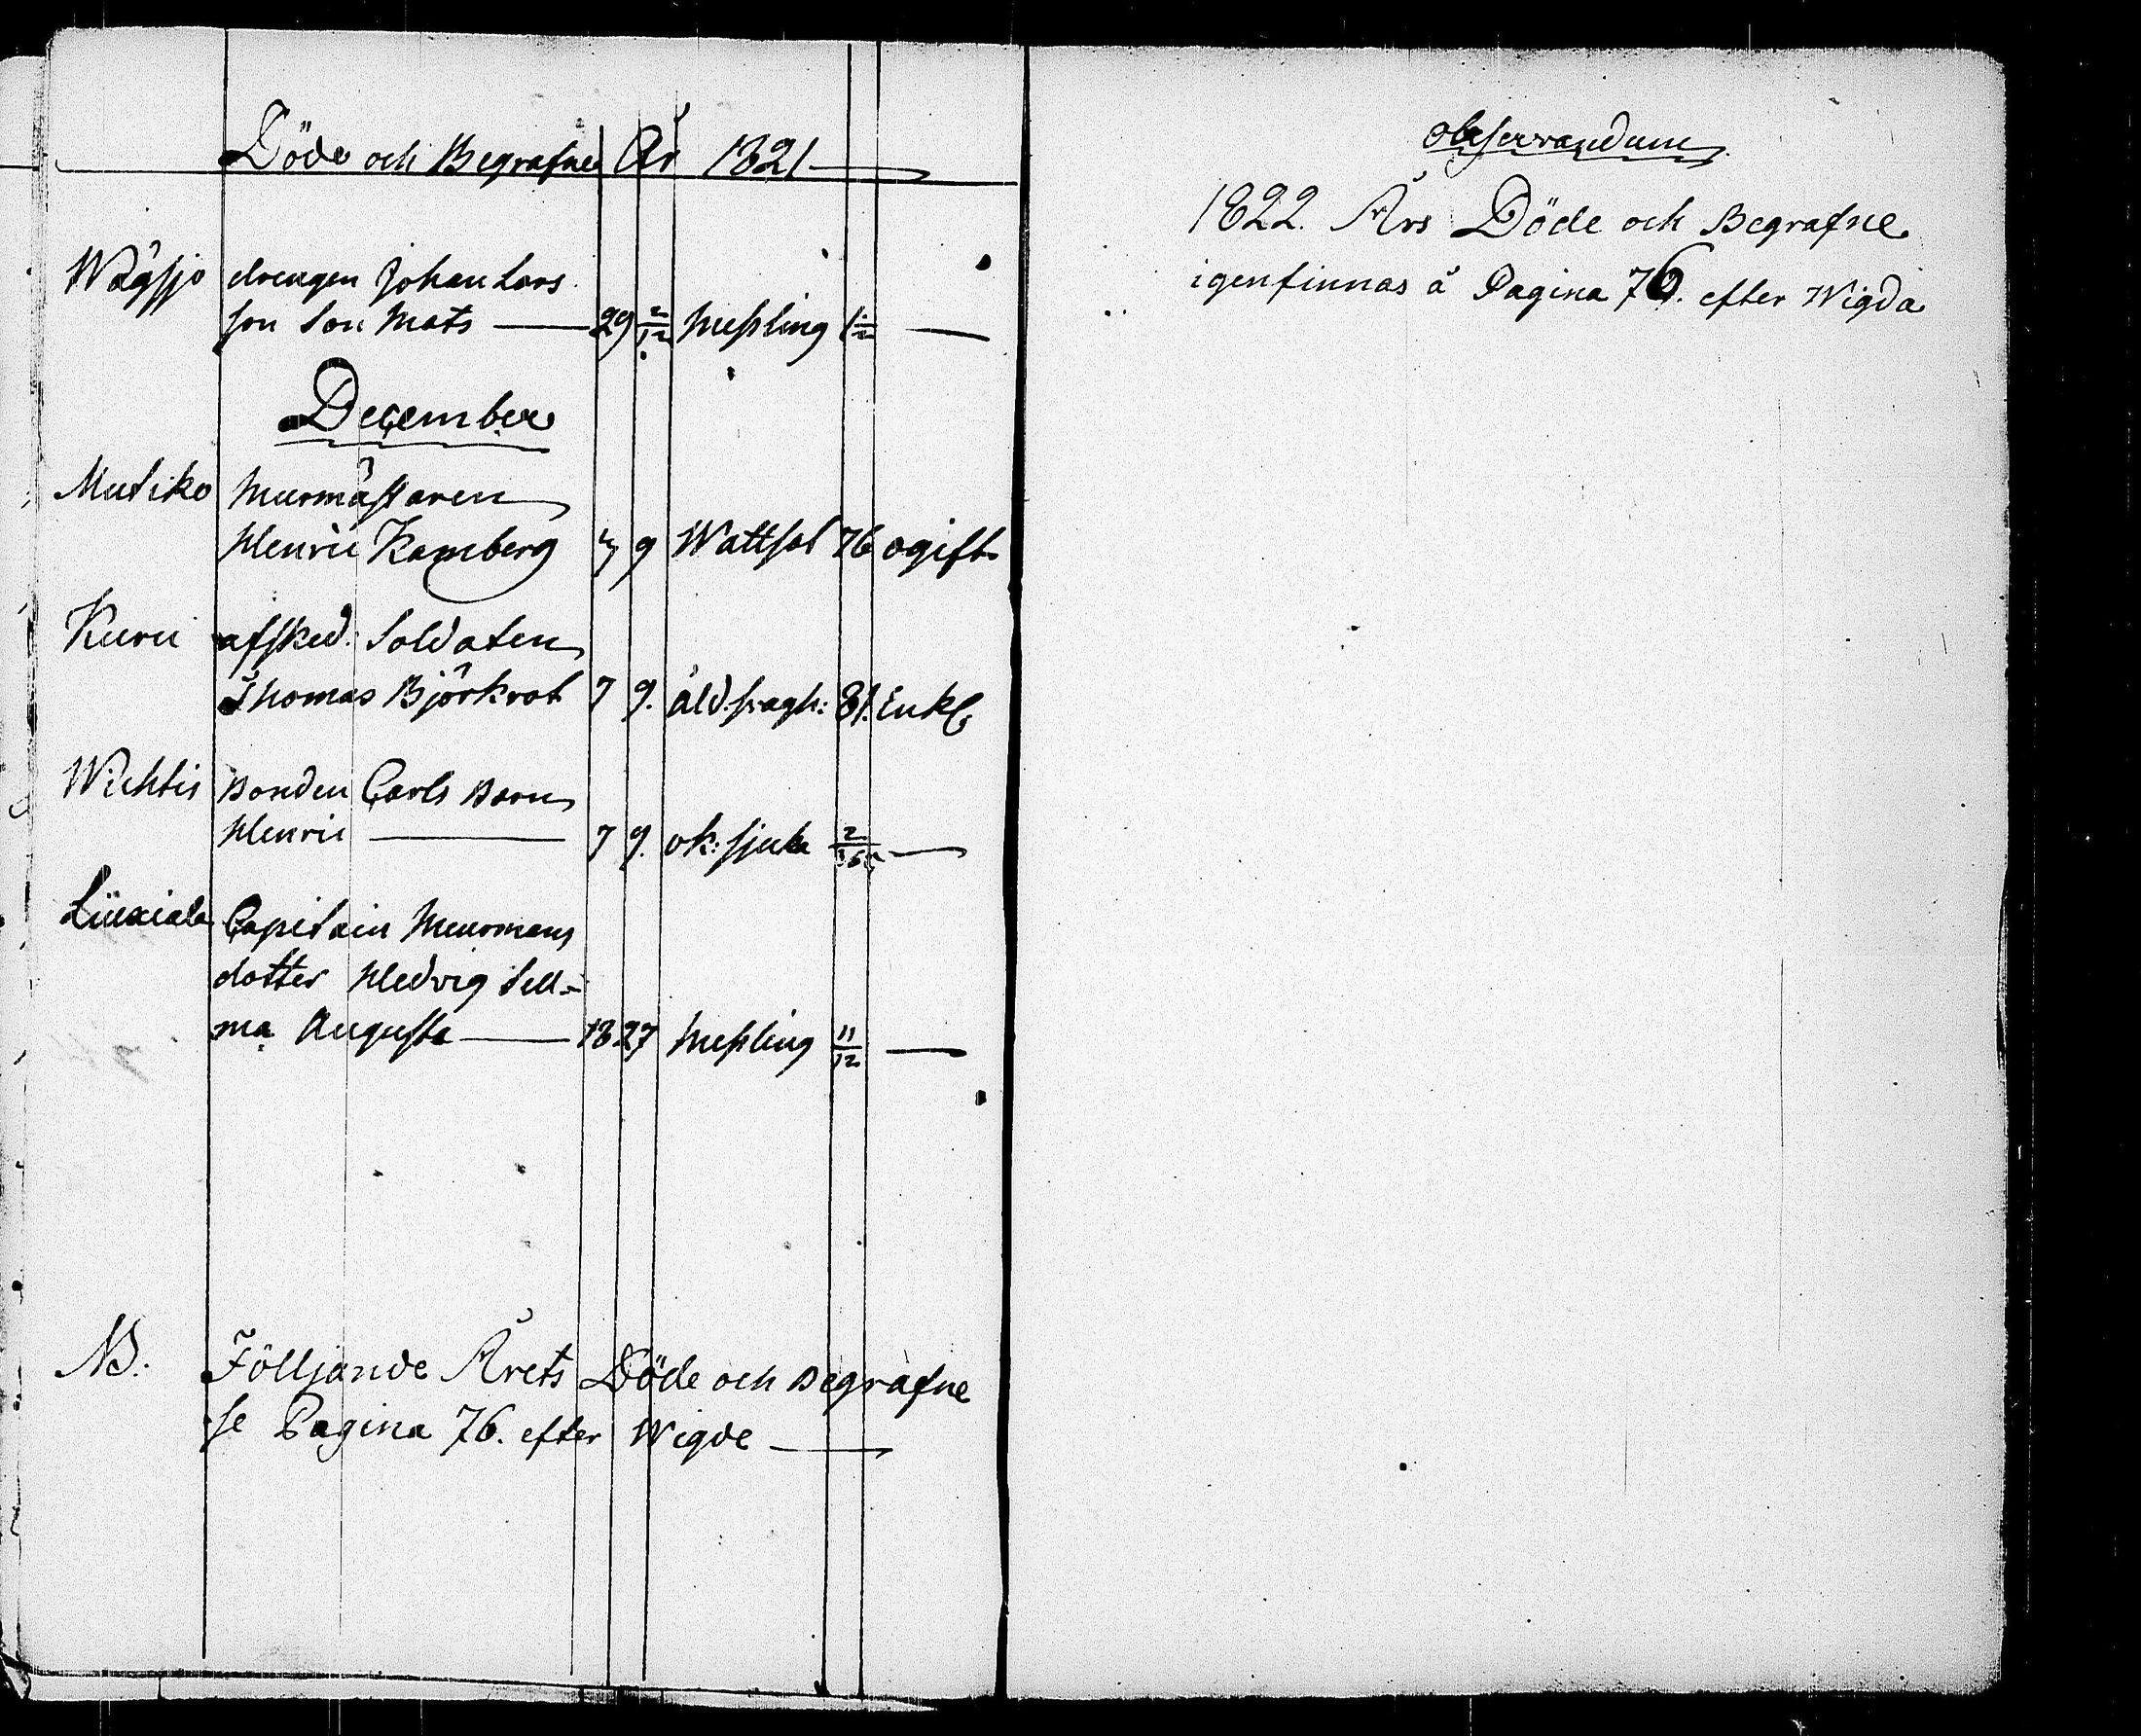 Döde och Begrafne År 1821
Wägsjo drengen Johan Lars
son Son Mats — 29 2/12 Messling 1 1/2 —
December
Mutiko Murmästaren
Henric Kamberg 4 9 Wattsot 76 ogift
Kuru afsked: Soldaten
Thomas Björkrot 7 9. åld.svagh: 81. Enkl.
Wichtis Bonden Carls Barn
Henric — 7 9. ok: sjuk —
Liuxiala Capitain Meurmans
dotter Hedvig Sell=
ma Augusta — 18 27 Messling 11/12 —
NB. Följande Årets Döde och Begrafne
se Pagina 76. efter Wigde —
Observandum
1822. Års Döde och Begrafne
igenfinnas å Pagina 76. efter Wigda